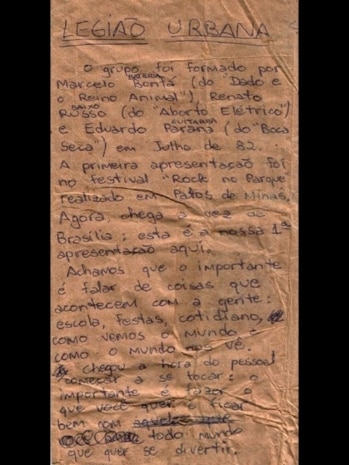 LEGIÃO URBANA
O grupo foi formado por
BATERIA
Marcelo Bonfá (do "Dado e
o Reino Animal") Renato
BAIXO
Russo (do "Aborto Elétrico")
GUITARRA
e Eduardo Paraná (do "Boca
Seca") em Julho de 82.
A primeira apresentação foi
no festival "Rock no Parque
realizado em Patos de Minas.
Agora, chega a vez de
Brasília: esta é a nossa 1ª
apresentação aqui.
Achamos que o importante
é falar de coisas que
acontecem com a gente:
escola, festas, cotidiano,
como vemos o mundo e
como o mundo nos vê.
Chegou a hora do pessoal
começar a se tocar: o
importante é fazer o
que você quer e ficar
bem com
todo mundo
que quer se divertir.